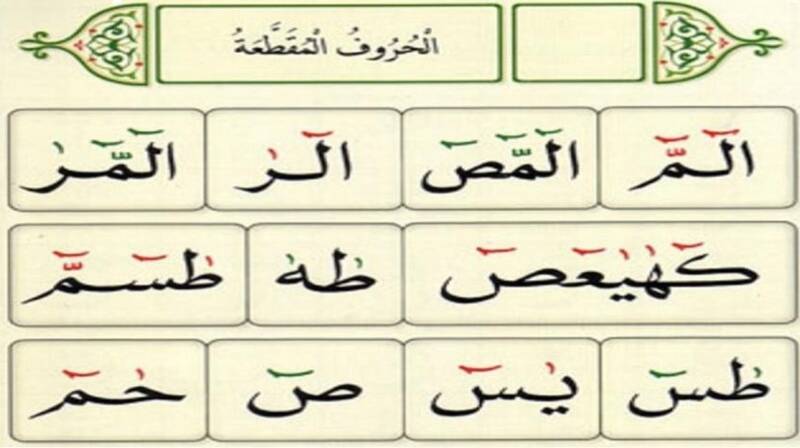 الْحُرُوفُ الْمُقَطَّعَةُ
الٓمّٓ الٓمّٓصٓ الٓرٰ الٓمّٓرٰ
كٓهٰيٰعٓصٓ طٰهٰ طٰسٓمّٓ
طٰسٓ يٰسٓ صٓ حٰمٓ